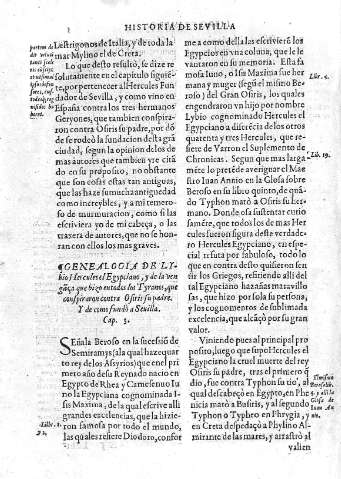 HISTORIA DE SEVILLA
Lestrigones de Italia, y de toda la
mar Mylino el de Creta.
Lo que desto resultò, se dize re
solutamente en el capitulo siguiē-
te, por pertenecer al Hercules Fun
dador de Sevilla, y como vino en
España contra los tres hermanos
Geryones, que tambien conspira-
ron contra Osiris su padre, por dō
de se rodeò la fundacion desta grā
ciudad, segun la opinion delos de
mas autores que tambien yre citā
do en su proposito, no obstante
que son cosas estas tan antiguas,
que las haze fumosas la antiguedad
como increybles, y a mi temero-
so de murmuracion, como si las
escriviera yo de mi cabeça, o las
traxera de autores, que no se honrar
ran con ellos los mas graves.
GENEALOGIA DE LY-
bio Hercules el Egypciano, y de la ven
gāça que hizo en todos los Tyranos, que
conspiraron contra Osiris su padre.
Y de como fundò a Sevilla.
Cap. 3.
SEñala Beroso en la sucessiō de
Semiramys (a la qual haze quar
to rey de los Assyrios) que en el pri
mero año de su Reynado nacio en
Egypto de Rhea y Camesenuo Iu
no la Egypciana cognominada I-
sis Maxima, de la qual escrive alli
grandes excelencias, que la hizie-
ron famosa por todo el mundo,
las quales refiere Diodoro, confor
me a como della las escrivierō los
Egypcios en vna coluna, que le le-
vantaron en su memoria. Esta fa
mosa Iuno, o Isis Maxima fue her
mana y muger (segū el mismo Be
roso) del Gran Osiris, los quales
engendraron vn hijo por nombre
Lybio cognominado Hercules el
Egypciano a diferēcia de los otros
quarenta y tres Hercules, que re-
fiere de Varron el Suplemento de
Chronicas. Segun que mas larga
mēte lo pretēde averiguar el Mae
stro Iuan Annio en la Glosa sobre
Beroso en su libro quinto, de quā-
do Typhon matò a Osiris su her
mano. Donde osa sustentar curio
samēte, que todos los de mas Her
cules fueron figura deste verdade-
ro Hercules Egypciano, en espe-
cial resuta por fabuloso, todo lo
que en contra desto quisieron sen
sir los Griegos, refiriendo alli del
tal Egypciano hazañas maravillo
sas, que hizo por sola su persona,
y los cognomentos de sublimada
excelencia, que alcāçò por su gran
valor.
Viniendo pues al principal pro
posito, luego que supo Hercules el
Egypciano la cruel muerte del rey
Osiris su padre, tras el primero q̄
dio, fue contra Typhon su tio, al
qual descabeçò en Egypto, en Phe
nicia matò a Busiris, y al segundo
Typhon o Typheo en Phrygia, y
en Creta despedaçò a Phylino Al-
mirante de las mares, y arrastrò al
valien